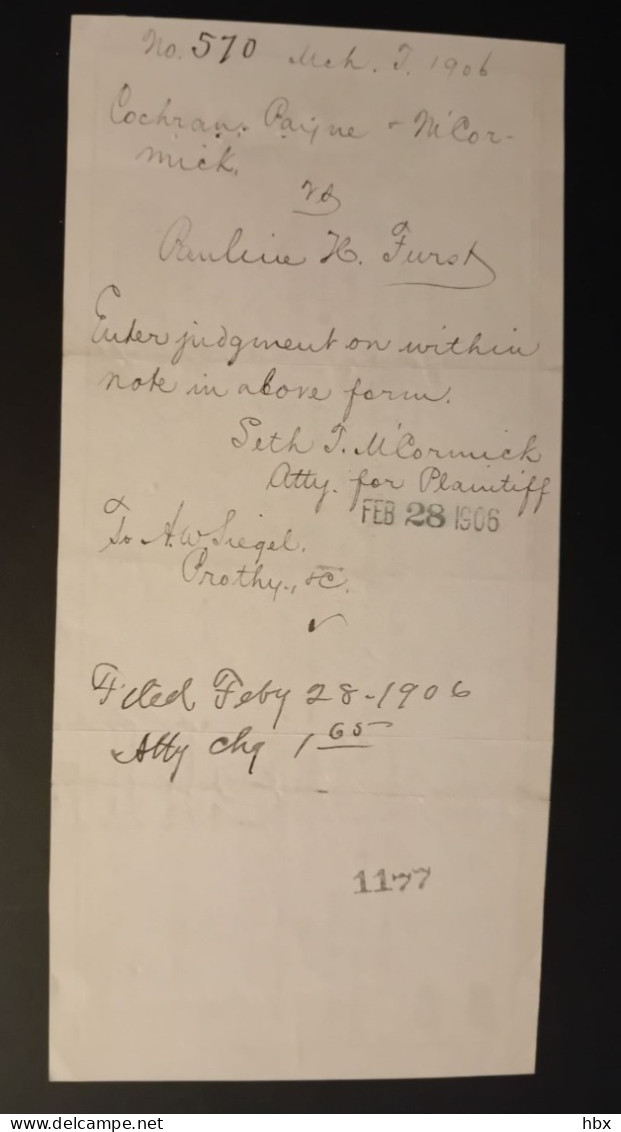 No. 570 Mch. T. 1906
Cochran, Payne & McCor-
mick.
vs
Pauline H. Furst
Enter judgment on within
note in above form.
Seth T. McCormick
Atty. for Plaintiff
FEB 28 1906
To A. W. Siegel.
Prothy., &c.
Filed Feby 28-1906
Atty chg 1 65
1177
hbx